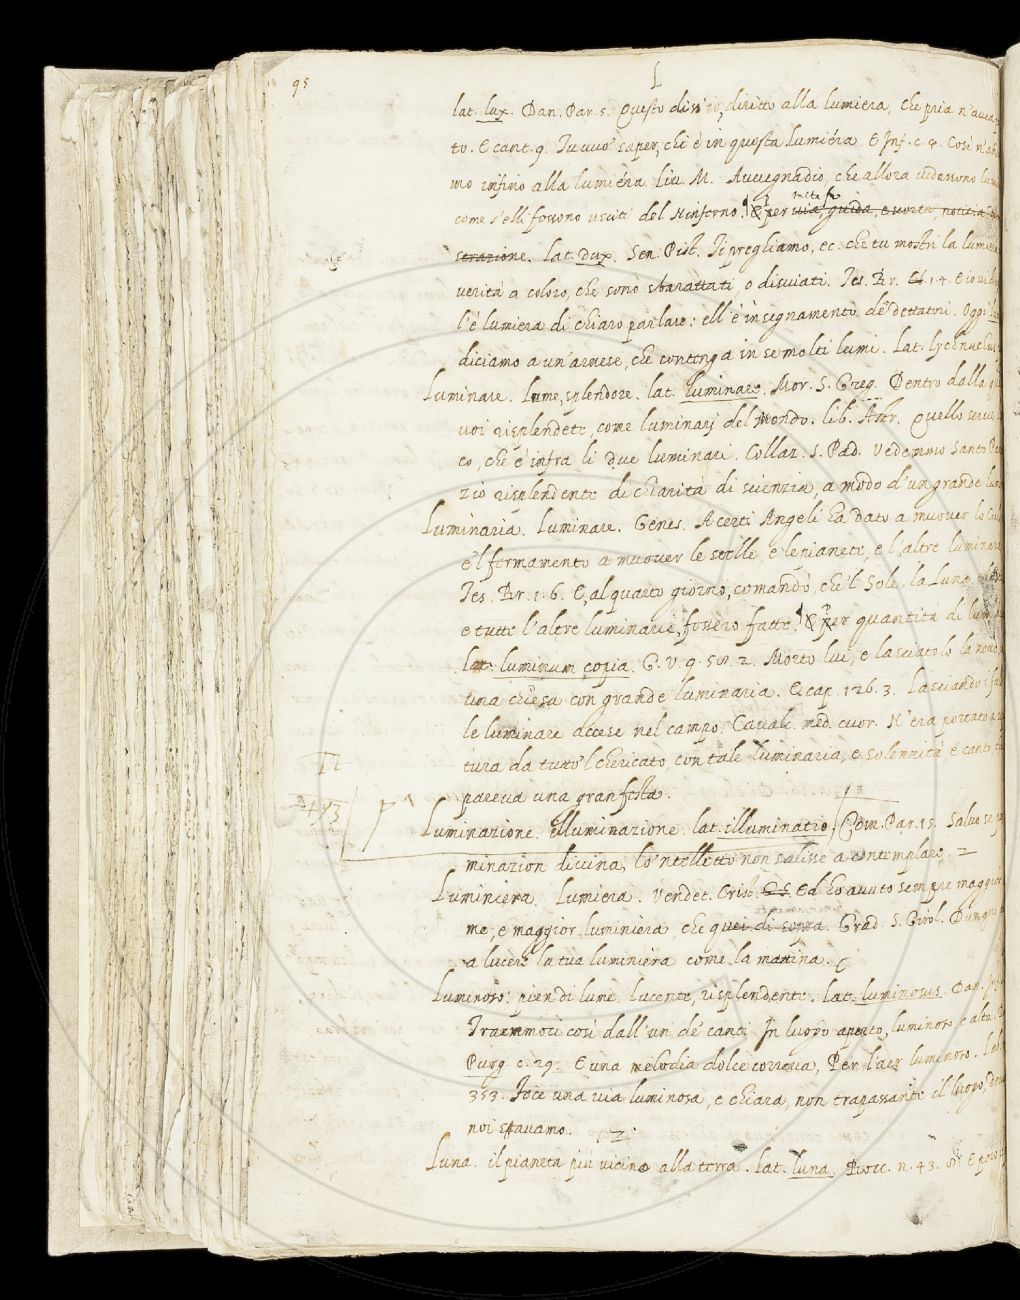 95
L
lat. lux. Dan. Par. 5. Questo disiro, diritto alla lumiera, che pria n'avea
to. E cant. 9. Tu vuo' saper, chi è in questa lumiéra. E Inf. c. 4. Così n'an
mo infino alla lumiéra. Liv. M. Avvegnadio, che allora vedessono lum
come s'elli fossono usciti del ninferno. E per metaf. via, guida, e
strazione. lat. dux. Sen. Pist. Ti preghiamo, ec. che tu mostri la lumiera
verità a coloro, che sono sbarattati, o disviati. Tes. Br. 1. 4.
l'è lumiera di chiaro parlare: ell'è insegnamento de' dettatori. Oggi
diciamo a un'arnese, che contenga in se molti lumi. Lat. lychnuchus
Luminare. Lume, splendore. lat. luminare. Mor. S. Greg. Dentro dalla
voi risplendete, come luminarj del Mondo. lib. Astr. Quello
co, che è infra li due luminari. Collaz. S. Pad. Vedemmo Santo
zio risplendente di charità di scienzia, a modo d'un grande lum
Luminaria. Luminare. Genes. A certi Angeli ha dato a muover lo
e'l fermamento a muover le stelle, e le pianete, e l'altre luminarie
Tes. Br. 1. 6. E, al quarto giorno, comandò, che'l Sole, la Luna, e le
e tutte l'altre luminarie, fossero fatte. E per quantità di lum
lat. luminum copia. G. V. 9. 58. 2. Morto lui, e lasciatolo la
una chiesa con grande luminaria. E cap. 126. 3. Lasciando i
le luminare accese nel campo. Cavalc. med. cuor. N'era portato a
tura da tutto 'l chericato, con tale luminaria, e solennità, e canto
pareva una gran festa.
Luminazione. Illuminazione. lat. illuminatio. Com. Par. 15. Salvo se
minazion divina, lo 'ntelletto non salisse a contemplare.
Luminiera. Lumiera. Vendet. Crist. Ed ho avuto sempre maggior
me, e maggior luminiera, che quei di sopra. Grad. S. Girol. Dunque
a lucere la tua luminiera come la mattina.
Luminoso: pien di lume, lucente, risplendente. Lat. luminosus. Dan.
Traemmoci così dall'un de' canti In luogo aperto, luminoso, e alto.
Purg. c. 29. E una melodia dolce correva, Per l'aer luminoso.
353. Fece una via luminosa, e chiara, non trapassante il luogo, dove
noi stavamo.
Luna. il pianeta più vicino alla terra. Lat. luna. Bocc. n. 43. 8.